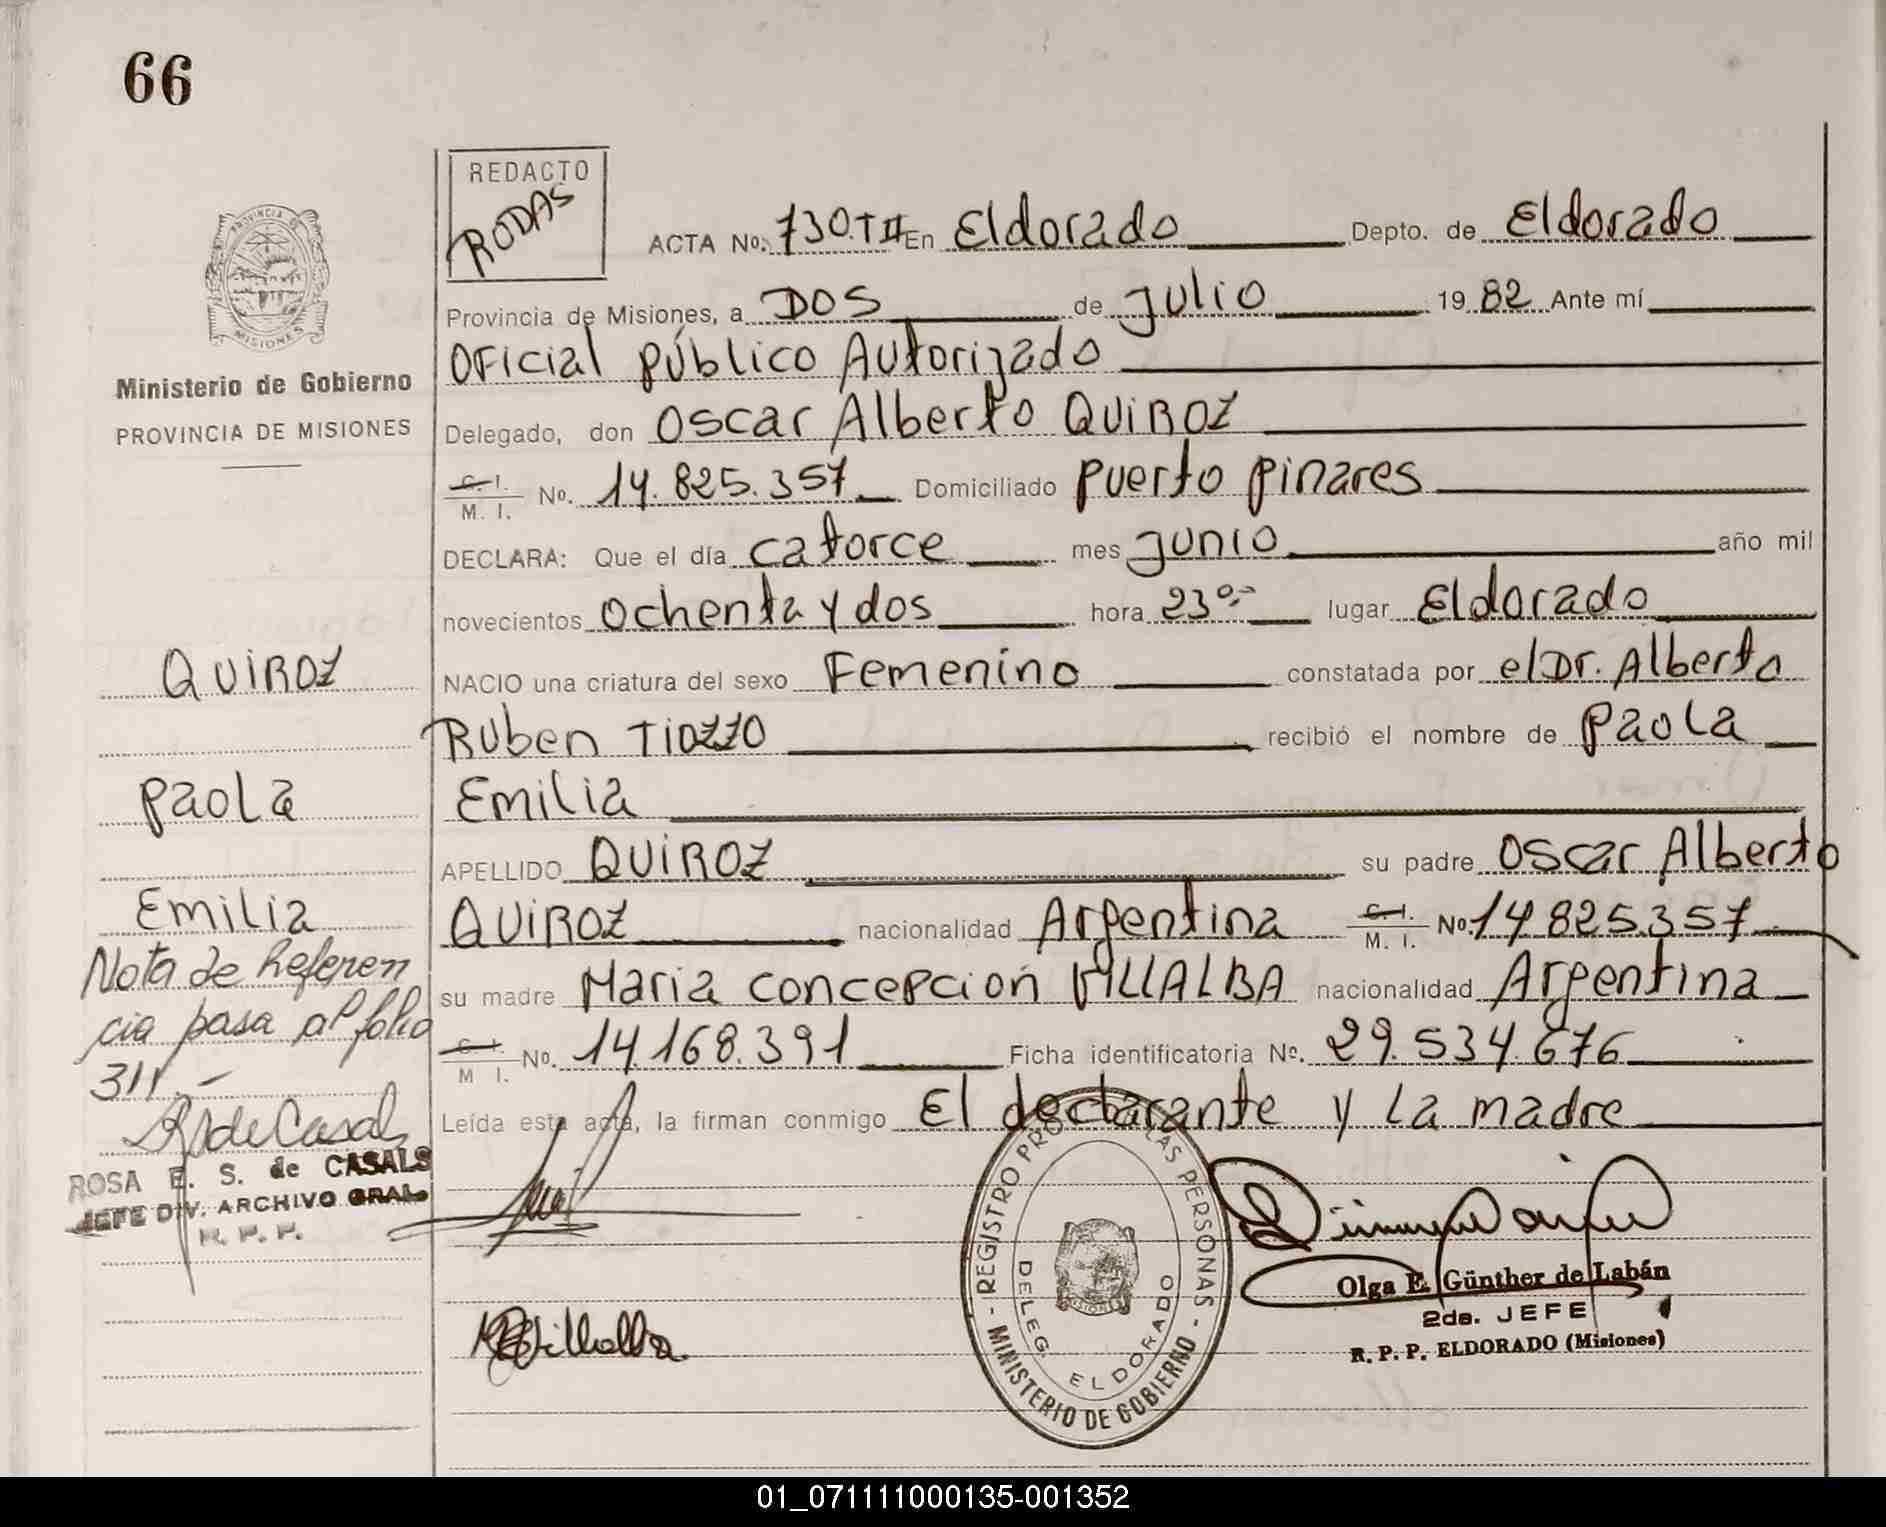 66
REDACTO
RODAS
PROVINCIA DE
MISIONES
Ministerio de Gobierno
PROVINCIA DE MISIONES
ACTA No. 730.T II En Eldorado Depto. de Eldorado
Provincia de Misiones, a DOS de Julio 1982 Ante mí
Oficial Público Autorizado
Delegado, don Oscar Alberto QUIROZ
C. I. / M. I. No. 14.825.357 Domiciliado Puerto Pinares
DECLARA: Que el día catorce mes Junio año mil
novecientos Ochenta y dos hora 23 lugar Eldorado
NACIO una criatura del sexo Femenino constatada por el Dr. Alberto
Ruben TIOZZO recibió el nombre de Paola
Emilia
APELLIDO QUIROZ su padre Oscar Alberto
QUIROZ nacionalidad Argentina C. I. / M. I. No. 14.825.357
su madre Maria Concepcion VILLALBA nacionalidad Argentina
C. I. / M. I. No. 14.168.391 Ficha identificatoria No. 29.534.676
Leída esta acta, la firman conmigo El declarante y La madre
QUIROZ
Paola
Emilia
Nota de Referen
cia pasa al folio
311.-
ROSA E. S. de CASALS
JEFE DIV. ARCHIVO GRAL
R. P. P.
REGISTRO PROV. DE LAS PERSONAS - MINISTERIO DE GOBIERNO -
DELEG. ELDORADO
MISIONES
Olga E. Günther de Labán
2da. JEFE
R. P. P. ELDORADO (Misiones)
01_071111000135-001352